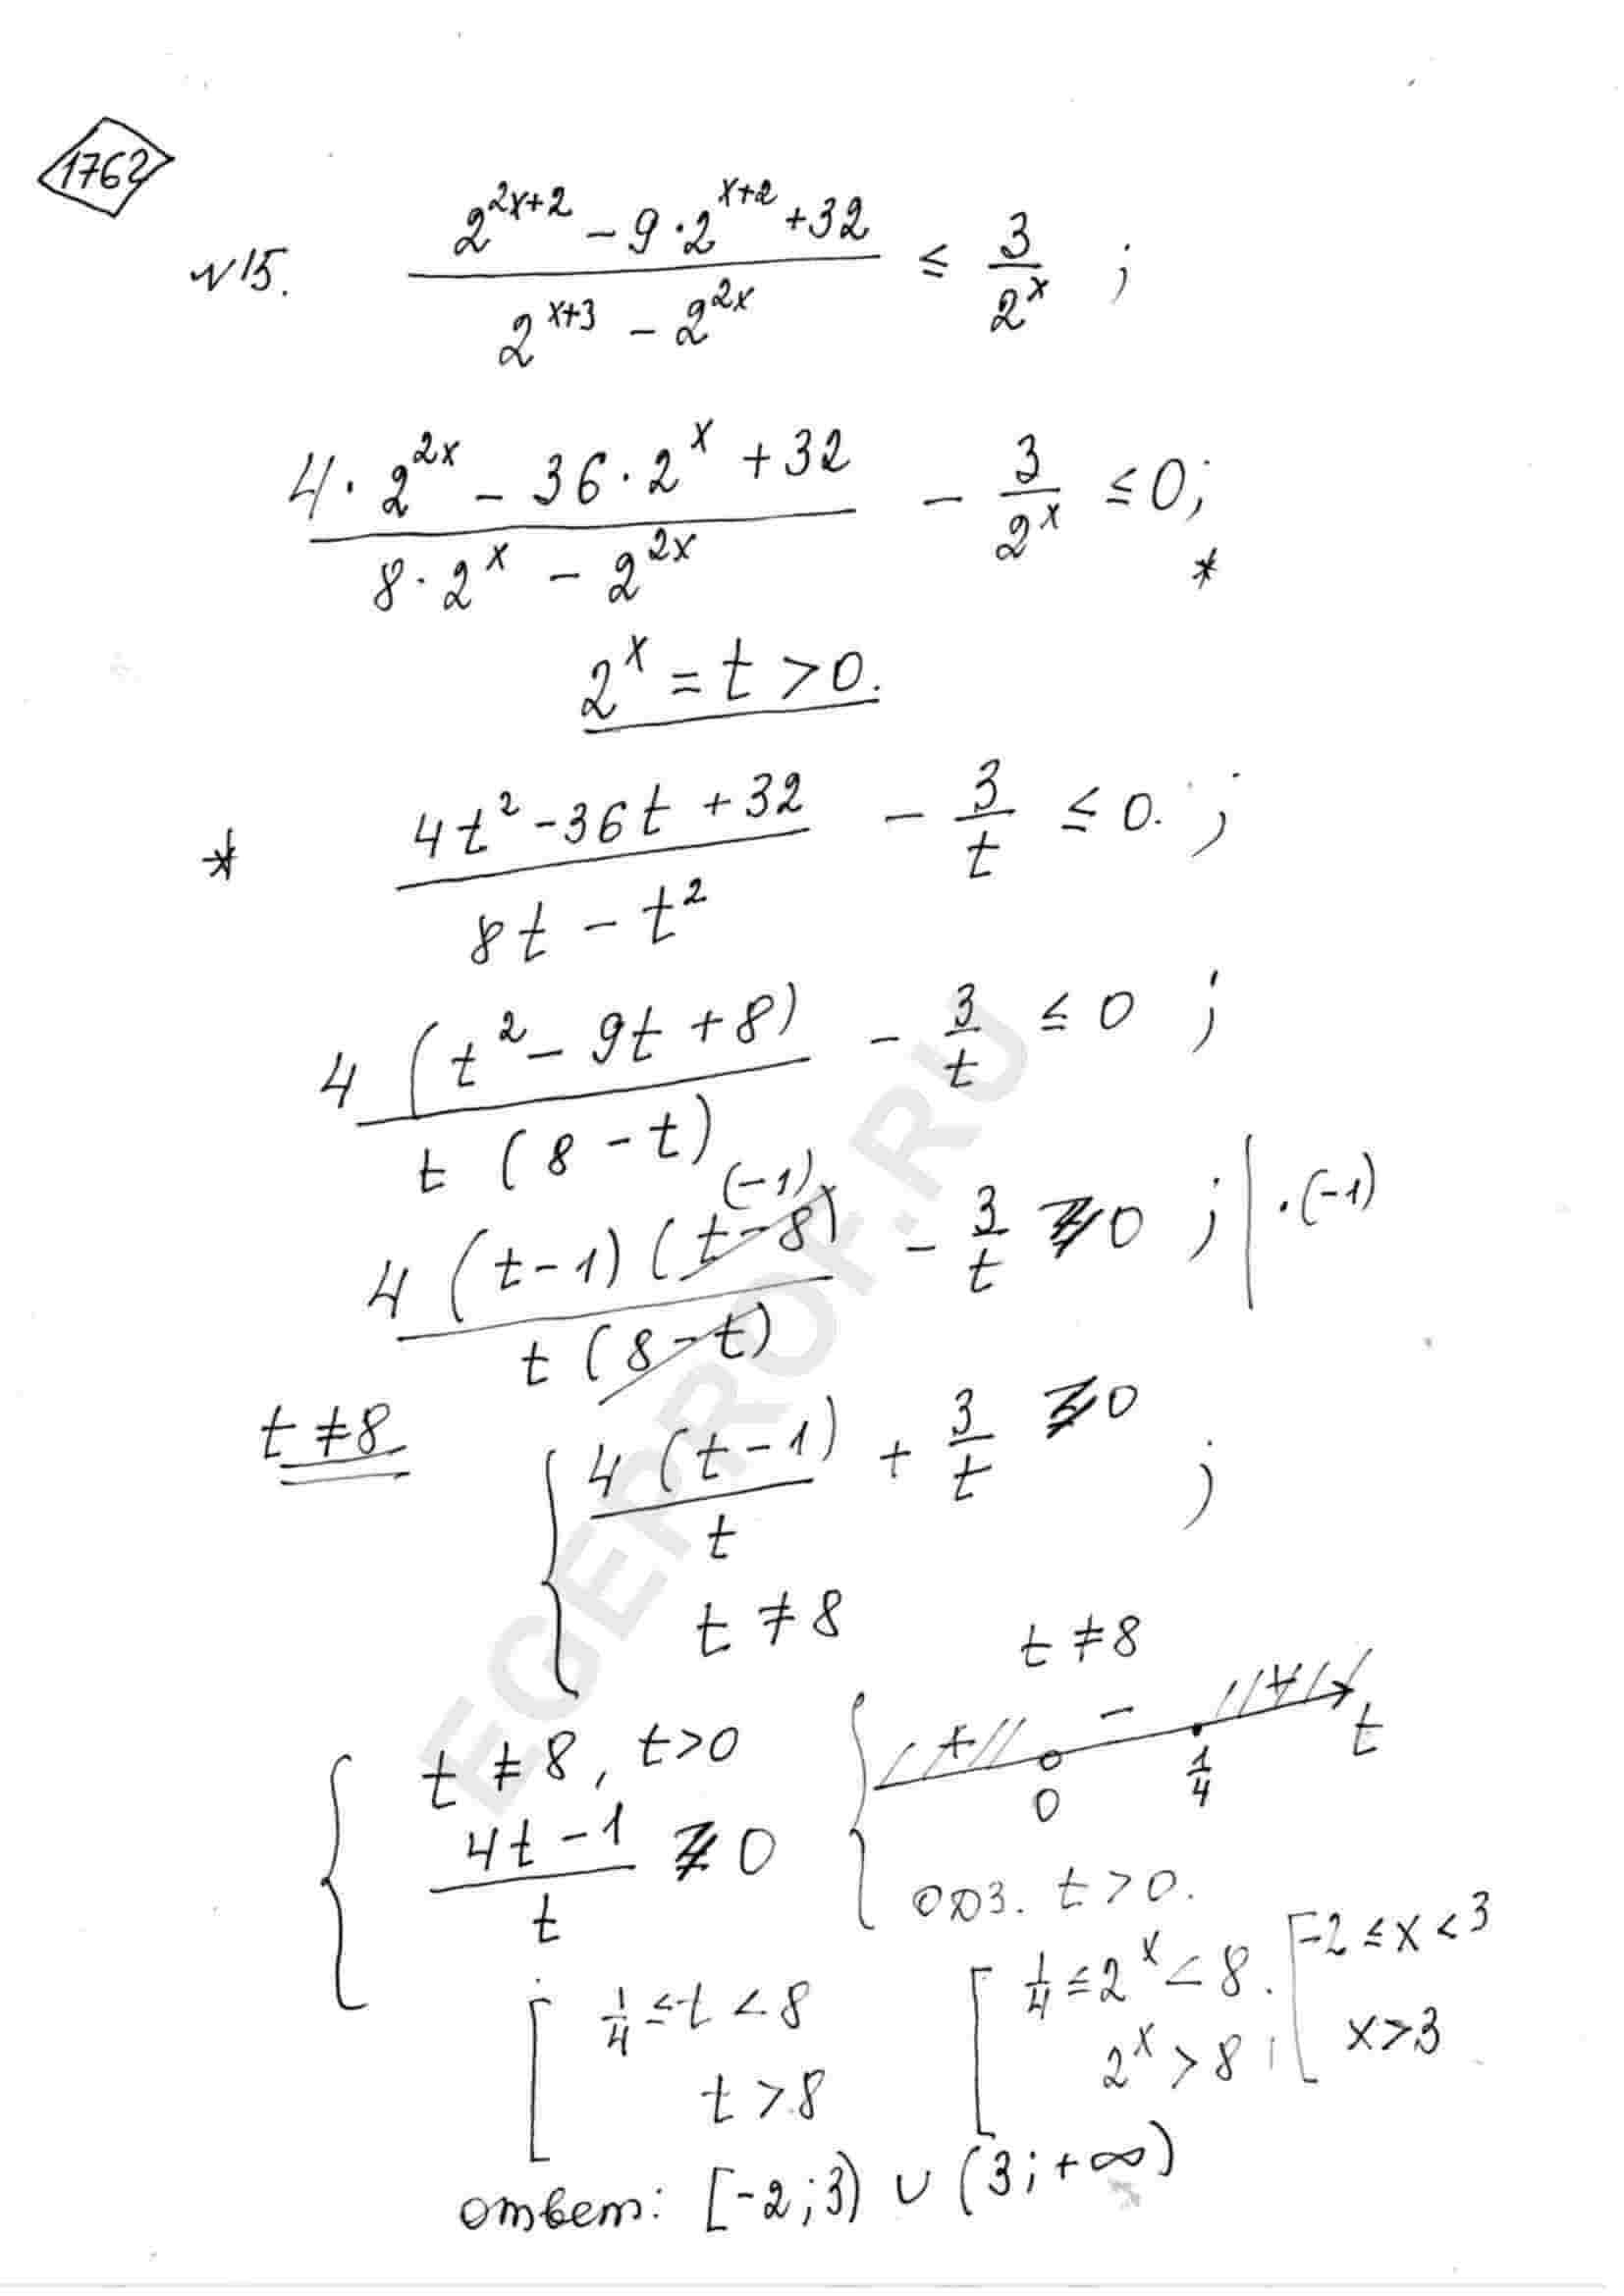 1762
№15. (2^(2x+2) - 9·2^(x+2) + 32) / (2^(x+3) - 2^(2x)) ≤ 3/2^x ;
(4·2^(2x) - 36·2^x + 32) / (8·2^x - 2^(2x)) - 3/2^x ≤ 0; *
2^x = t > 0.
* (4t² - 36t + 32) / (8t - t²) - 3/t ≤ 0. ;
4(t² - 9t + 8) / (t(8 - t)) - 3/t ≤ 0 ;
4(t-1)(t-8)(-1) / (t(8-t)) - 3/t 0 ; | ·(-1)
t ≠ 8
{ 4(t-1)/t + 3/t 0 ;
t ≠ 8
t ≠ 8
{ t ≠ 8, t > 0
(4t - 1)/t 0
{ + - + t
0 1/4
ОДЗ. t > 0.
[ 1/4 ≤ t < 8
t > 8
[ 1/4 ≤ 2^x < 8.
2^x > 8 ;
[ -2 ≤ x < 3
x > 3
ответ: [-2; 3) ∪ (3; +∞)
EGEPROF.RU